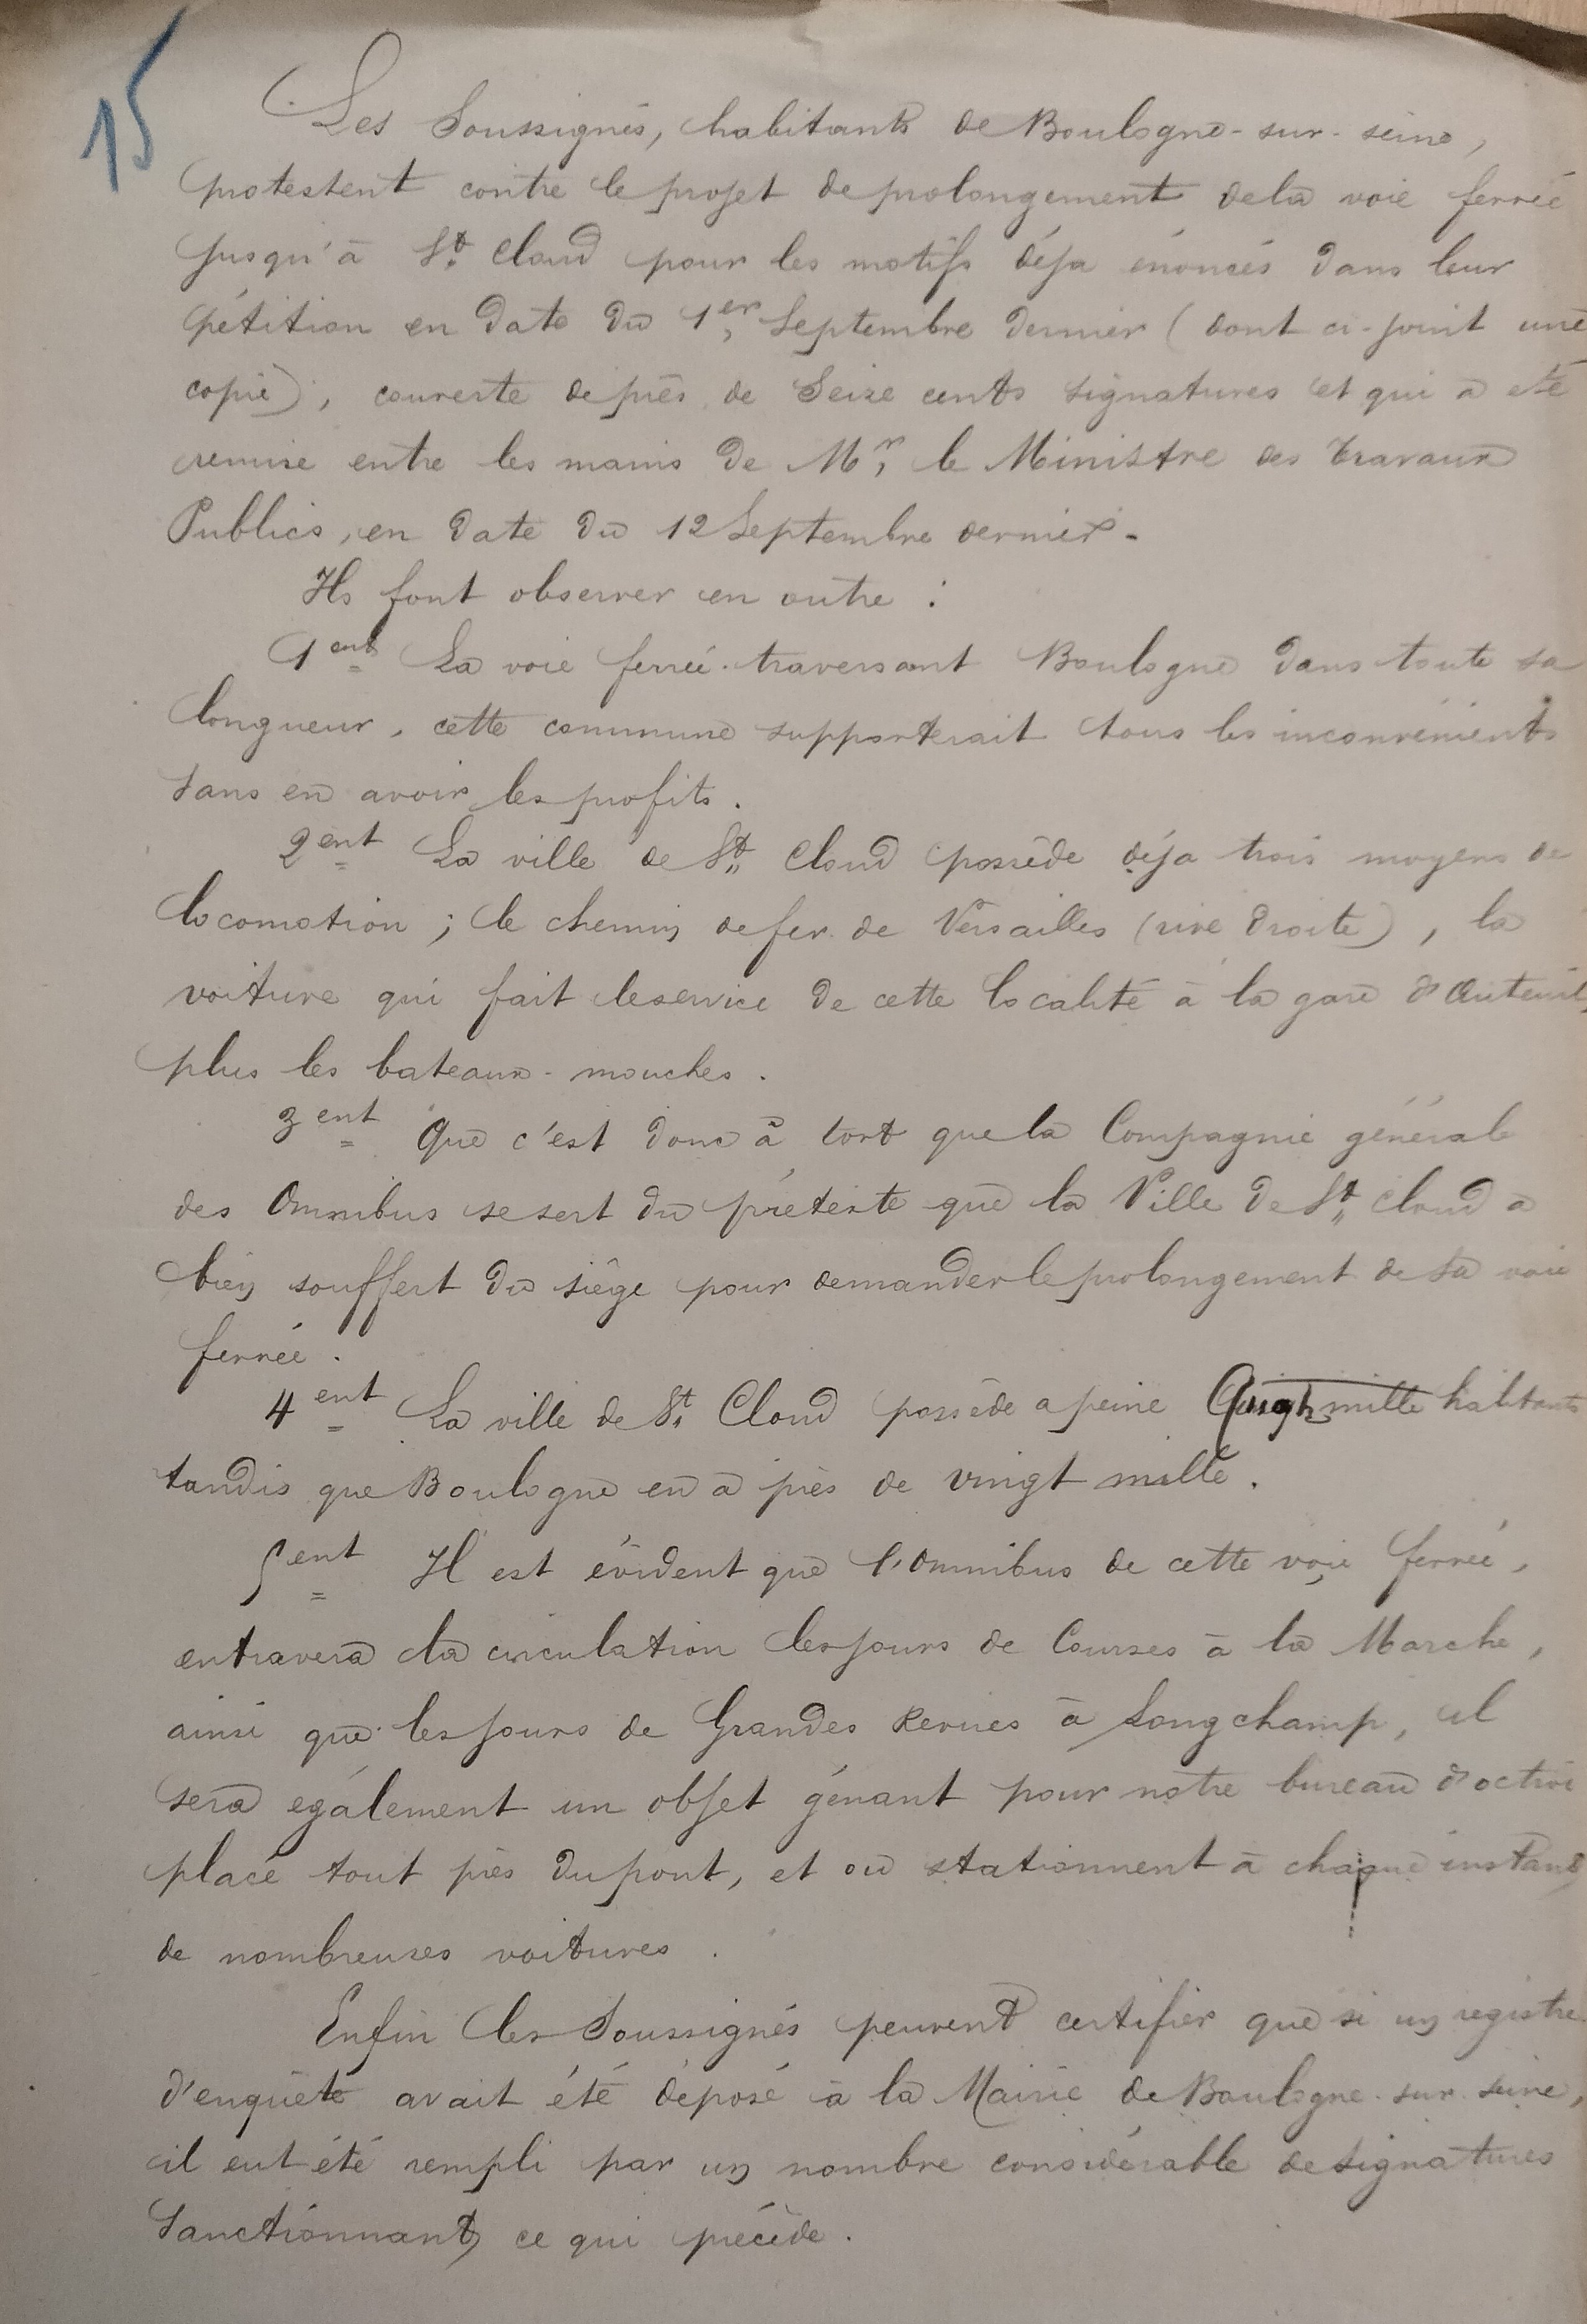 15
Les Soussignés, habitants de Boulogne-sur-seine,
protestent contre le projet de prolongement de la voie ferrée
jusqu'à St. Cloud pour les motifs déja énoncés dans leur
pétition en date du 1er Septembre dernier (dont ci-joint une
copie), couverte de près de Seize cents signatures et qui à été
remise entre les mains de Mr, le Ministre des travaux
Publics, en date du 12 Septembre dernier.
Ils font observer en outre :
1ent La voie ferrée traversant Boulogne dans toute sa
longueur, cette commune supporterait tous les inconvénients
sans en avoir les profits.
2ent La ville de St. Cloud possède déja trois moyens de
locomotion ; le chemin de fer de Versailles (rive droite), la
voiture qui fait le service de cette localité à la gare d'Auteuil,
plus les bateaux-mouches.
3ent Que c'est donc à tort que la Compagnie générale
des Omnibus se sert du prétexte que la Ville de St. Cloud a
bien souffert du siège pour demander le prolongement de sa voie
ferrée.
4ent La ville de St. Cloud possède a peine mille habitants
tandis que Boulogne en a près de vingt mille.
5ent Il est évident que l'Omnibus de cette voie ferrée,
entravera la circulation les jours de Courses à la Marche,
ainsi que les jours de Grandes Revues à Longchamp, il
sera egalement un objet génant pour notre bureau d'octroi
placé tout près du pont, et où stationnent à chaque instant,
de nombreuses voitures.
Enfin les Soussignés peuvent certifier que si un registre
d'enquête avait été déposé à la Mairie de Boulogne-sur-seine,
il eut été rempli par un nombre considérable de signatures
Sanctionnant ce qui précède.